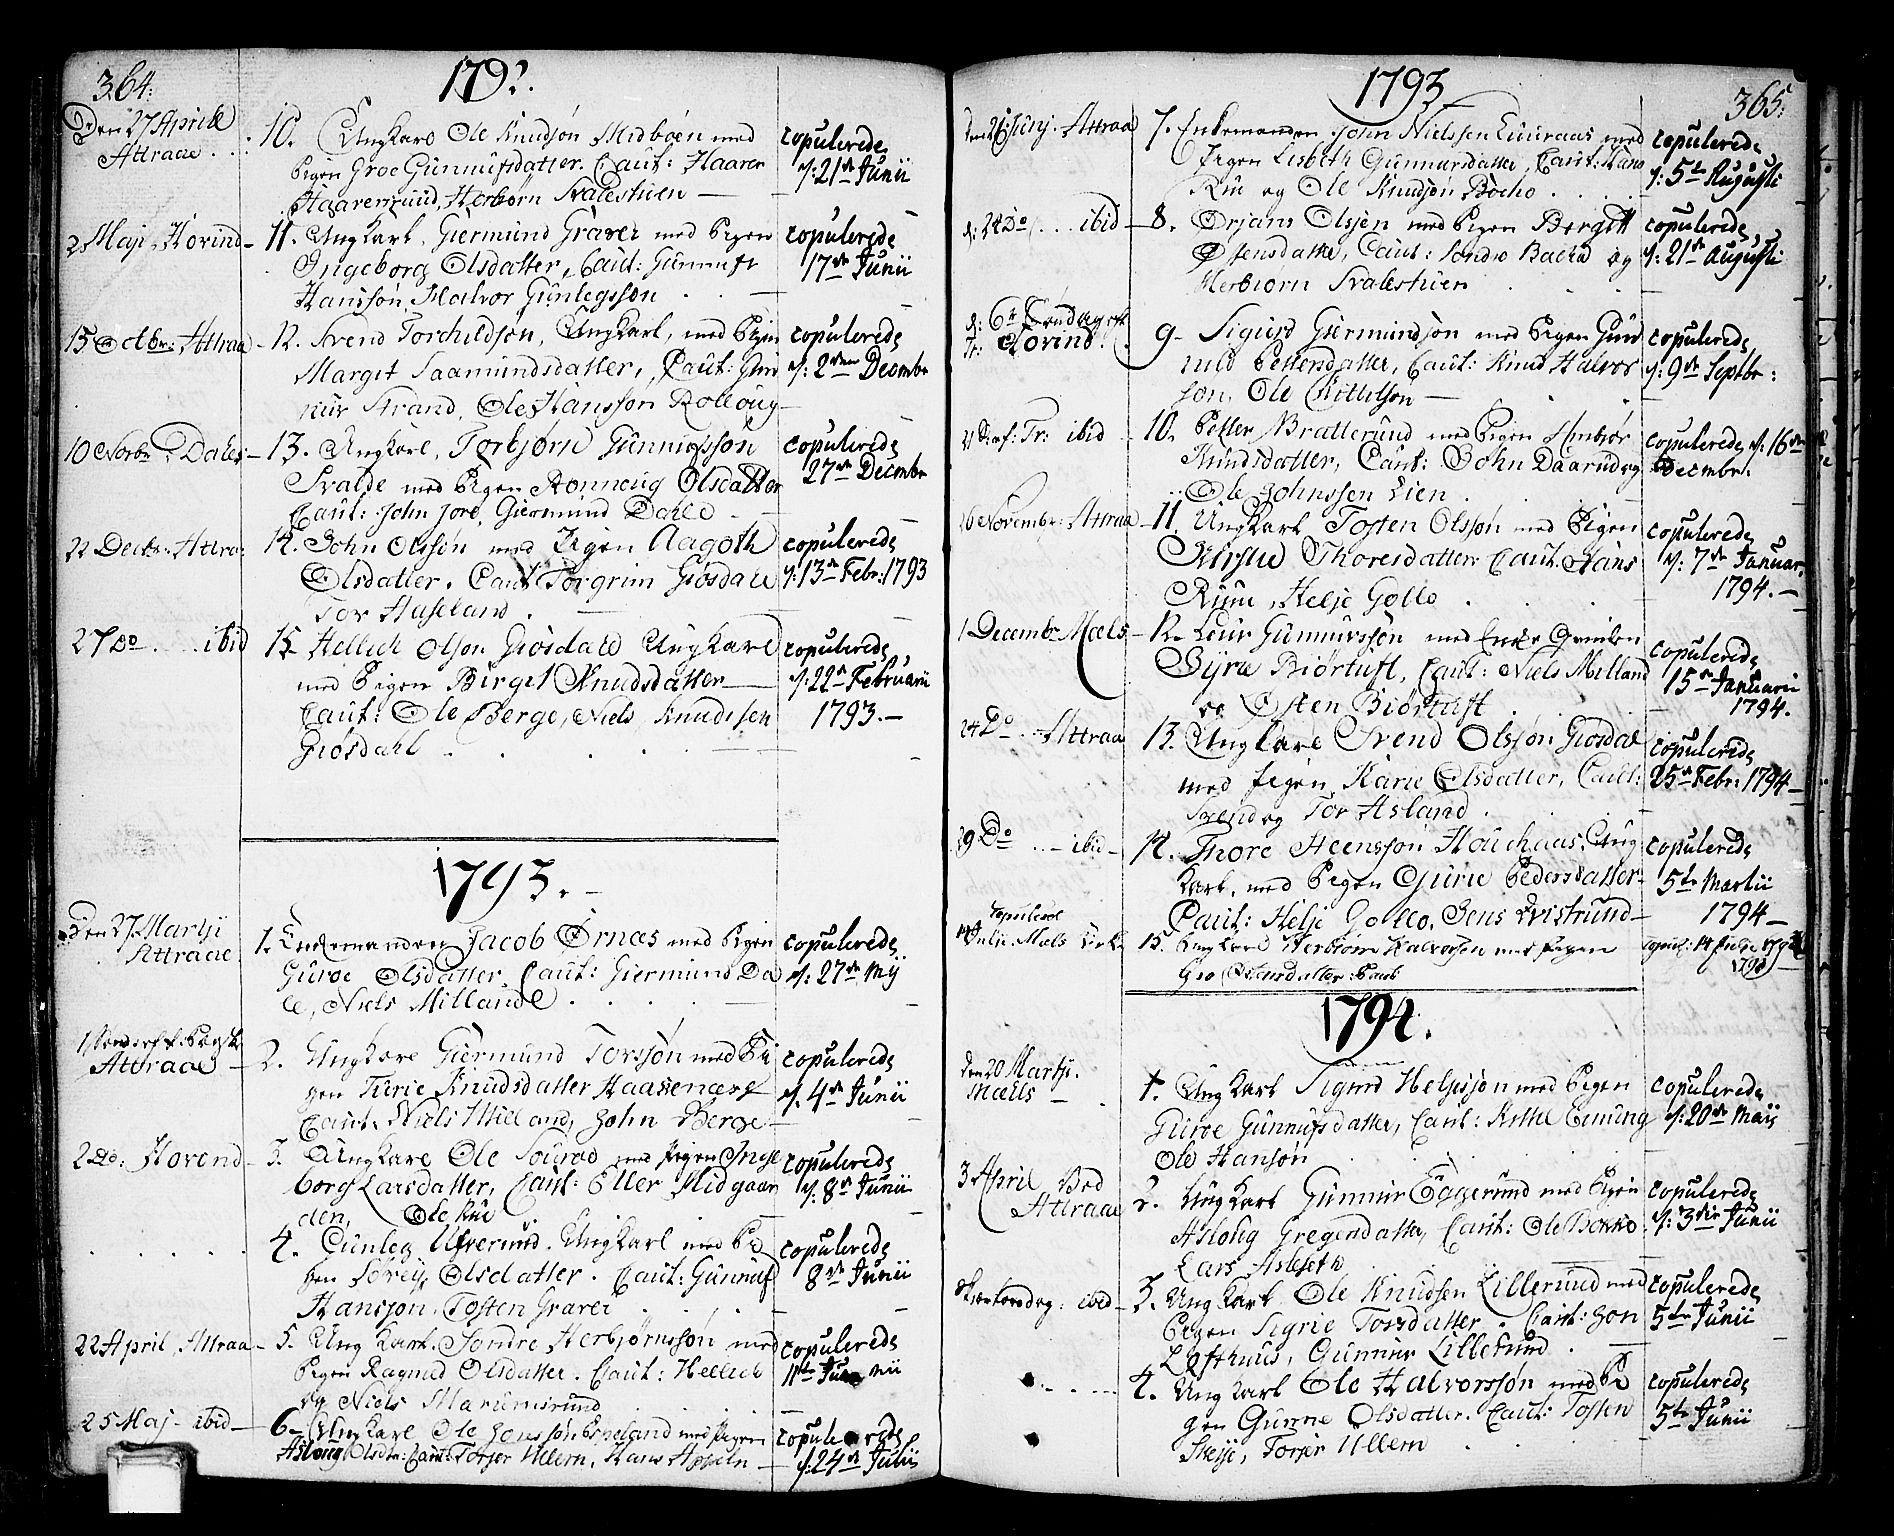 364.
1792.
Den 27 Aprile
Attraae
10. Ungkarl Ole Knudsøn Midbøen med
Pigen Groe Gunnufsdatter. Caut: Haaver
Haaverrud, Herbørn Svalestuen —
copulerede
d: 21de Junii
2 Maji Hovind — 11. Ungkarl Giermund Graver med Pigen
Ingeborg Olsdatter, Caut: Gunnuf
Hansøn, Halvor Gunlegsøn
copulerede
17de Junii
15 Octbr: Attraa — 12. Svend Torchildsøn, Ungkarl, med Pigen
Margit Saamundsdatter, Caut: Gun
nur Strand, Ole Hansson Rolloug —
copulerede
d: 2den Decembr
10 Novbr: Dahle — 13. Ungkarl, Torbjørn Gunnufsson
Svalde med Pigen Ronnoug Olsdatter
Caut: John Jore, Giermund Dahle
copulerede
27de Decembr
22 Decbr: Attra: 14. John Olssøn med Pigen Aagoth
Olsdatter. Caut Torgrim Giøsdale
Tor Haseland.
copulerede
d: 13de Febr: 1793
27 Do .... ibid 15. Hellich Olsøn Giøsdale Ungkarl
med Pigen Birgit Knudsdatter —
Caut: Ole Berge, Niels Knudssen
Giøsdahl
copulerede
d: 22de Februarii
1793. —
1793. —
Den 27 Martji
Attraae
1. Enkemanden Jacob Ørnæs med Pigen
Guroe Olsdatter, Caut: Giermund Da
le, Niels Millande
copulerede
d: 27de Mij
Attraae — 2. Ungkarl Giermund Torssøn med Pi
gen Turie Knudsdatter Haasenæs
Caut: Niels Milland, John Berge —
copulerede
d. 4de Junii
2 Do: Hovend — 3. Ungkarl Ole Sourao med Pigen Inge
borg Larsdatter, Caut: Eller Midgaar
den, Ole Rue
copulerede
d. 8de Junii
4. Gunleg Ufserud. Ungkarl med Pi
gen Sørey Olsdatter. Caut: Gunnuf
Hansøn, Tosten Graver
copulerede
8de Junii
22 April, Attraa — 5. Ung Karl Sondre Herbjørnssøn med
Pigen Ragnild Olsdatter. Caut: Hellich
og Niels Marumsrund
copulerede
11te Junii
25 Maj - ibid — 6. Ungkarl Ole Jonssøn Espeland med Pigen
Aslong Olsdtr: Caut: Torjer Ullern, Hans
copulerede
d: 24de Julii
1793
365.
den 26 Junj. Attraa 7. Enkemanden John Nielssen Luuraas med
Pigen Lisbeth Gunnursdatter, Caut: Hans
Rue og Ole Knudsøn Bocho
copulerede
d: 5te Augusti
d: 28 Do .... ibid — 8. Ørjans Olssen med Pigen Bergitt
Ostensdatter, Caut: Sondre Bacha og
Herbiørn Svalestuen
copulerede
d: 21de Augusti
d: 6te Søndag eft
Tr: Hovind.
9. Sigurd Giermundsøn med Pigen Gun
nild Pettersdatter, Caut: Knud Halvor
son, Ole Kittilsøn —
copulerede
d: 9de Septbr:
21 Dnf: Tr: ibid 10. Petter Bratterund med Pigen Annbiør
Knudsdatter, Caut: John Daarud og
Ole Johnssen Lien
copulerede d: 16de
Decembr.
16 Novembr: Attraa — 11. Ungkarl Tosten Olssøn med Pigen
Kirstie Thoresdatter Caut: Hans
Rjue, Helje Gollo
copulerede
d: 7de Januar
1794. —
1 Decembr Mæls — 12. Leur Gunnurssøn med Enke Qvinden
Gyrie Biørtuft, Caut: Niels Milland
og Østen Biørtuft
copulerede
15de Januarii
1794.
24 Do .. Attraa 13. Ungkarl Svend Olssøn Giøsdal
med Pigen Karie Olsdatter, Caut:
Svend og Tor Asland
copulerede
25de Febr: 1794 —
29 Do .. ibid — 14. Thore Steenssøn Houchaas, Ung
karl, med Pigen Gurie Pedersdatter —
Caut: Helje Gollo. Jens Qvistrund —
copulerede
5te Martii
1794 —
copuleret
14 Julie Mæls Kirke 15. Ungkarl Herbiorn Halvorsen med Pigen
Gro Ostensdatter: Caut
copul: 14 Julje
1793
1794.
den 20 Martji.
Mæls —
1. Ung Karl Sigurd Helgessøn med Pigen
Guroe Gunnufsdatter, Caut: Kittel Einung
Ole Hansøn
copulerede
d: 20de Maij
3 April Bed
Attraae 2. Ung Karl Gunnur Eggerund med Pigen
Aslong Gregersdatter, Caut: Ole Bokko
Lars Asleseth
copulerede
d: 3die Junii
Skiærtorsdag: ibid — 3. Ung Karl Ole Knudsen Lillerund med
Pigen Sigrie Torsdatter. Caut: Jon
Lofthuus, Gunnur Lillerund
copulerede
5te Junii
4. Ung Karl Ole Halvorssøn med Pi
gen Gunne Olsdatter. Caut: Tosten
Skeije, Torjer Ullern
copulerede
5te Junii